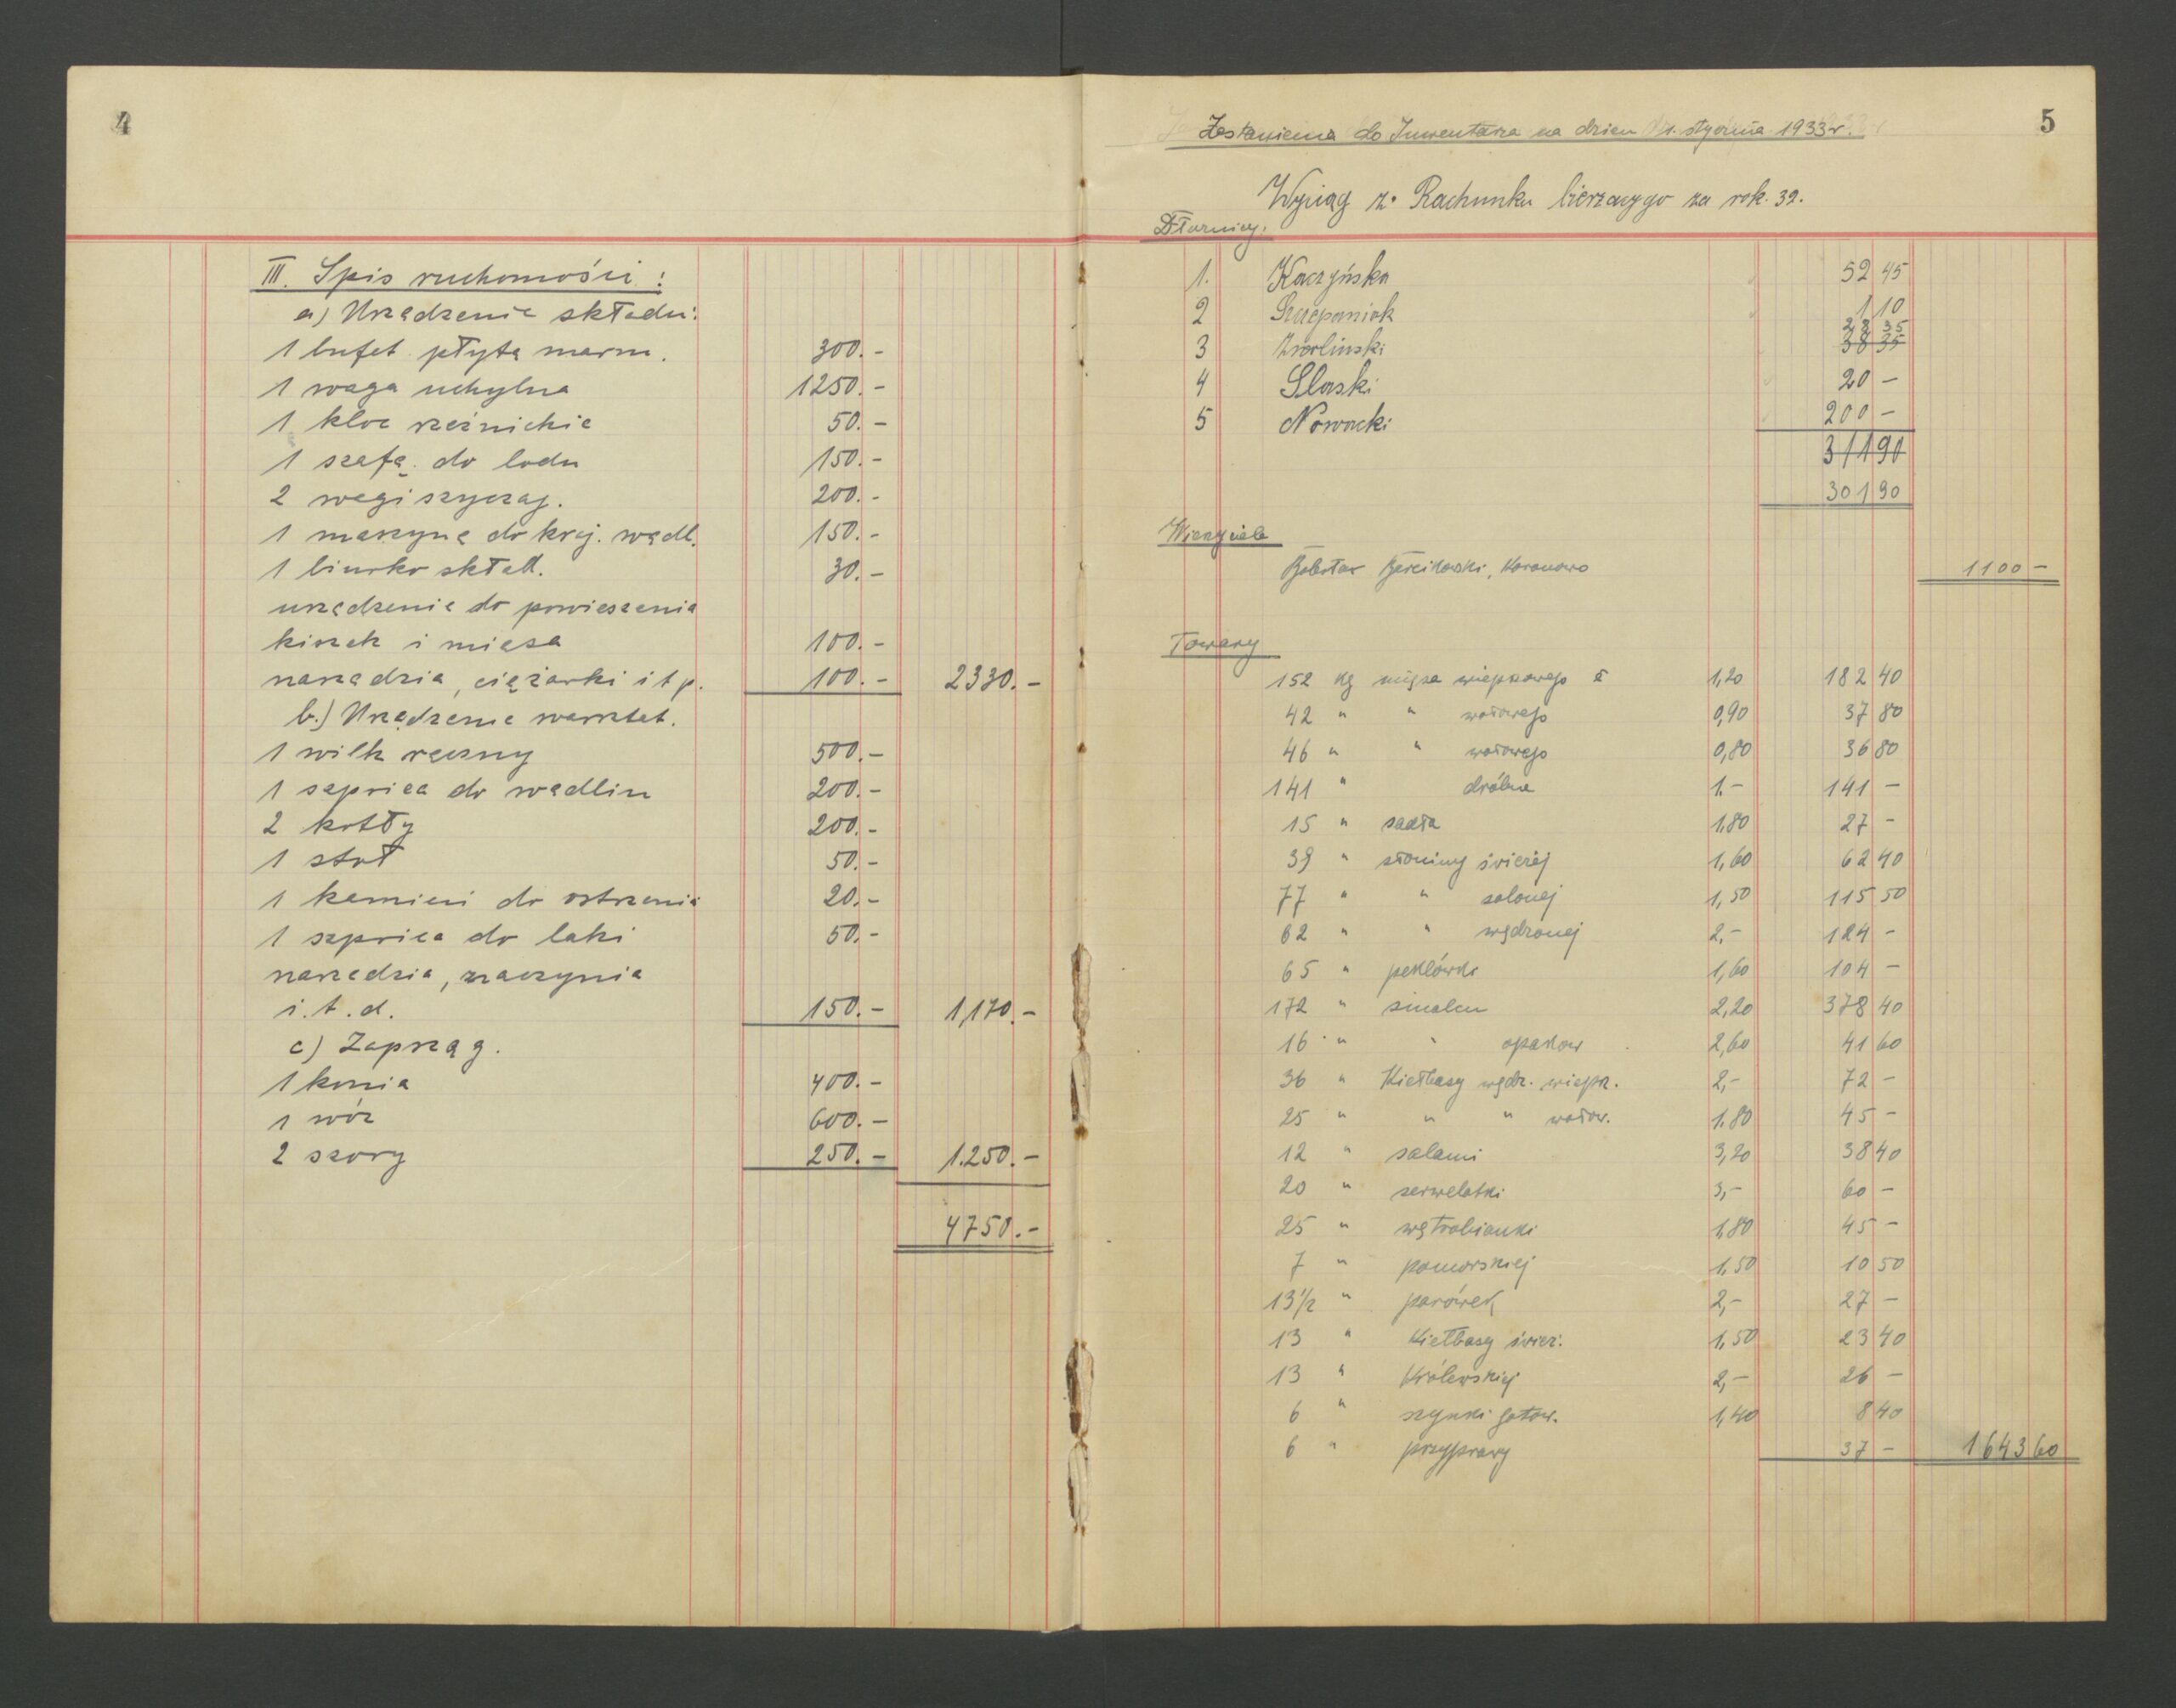 4
III. Spis ruchomości :
a) Urządzenie składu:
1 bufet płytą marm. 300.-
1 waga uchylna 1250.-
1 kloc rzeźnickie 50.-
1 szafą do lodu 150.-
2 wagi szyczag. 200.-
1 maszyna do kraj. wędl. 150.-
1 biurko skład. 30.-
urządzenie do powieszenia
kiszek i mięsa 100.-
narzędzia, ciężarki i t p. 100.- 2330.-
b.) Urządzenie warsztat.
1 wilk ręczny 500.-
1 szprica do wędlin 200.-
2 kotły 200.-
1 stół 50.-
1 kamień do ostrzenia 20.-
1 szprica do laki 50.-
narzędzia, naczynia
i.t.d. 150.- 1,170.-
c) Zaprząg.
1 konia 400.-
1 wóz 600.-
2 szory 250.- 1.250.-
4750.-
5
Zestawienia do Inwentarza na dzien 1. stycznia 1933 r.
Wyciąg z. Rachunku bierzącygo za rok. 32.
Dłużnicy.
1. Kaczyńska 52 45
2 Szczepaniak 1 10
28 35
3 Zwoliński 38 35
4 Slaski 20 -
5 Nowacki 200 -
311 90
301 90
Wierzyciele
Koronowo 1100 -
Towary
152 kg mięsa wieprzowego à 1,20 182 40
42 " " wołowego 0,90 37 80
46 " " wołowego 0,80 36 80
141 " drobne 1.- 141 -
15 " sadła 1.80 27 -
39 " słoniny świeżej 1,60 62 40
77 " " solonej 1,50 115 50
62 " " wędzonej 2,- 124 -
65 " peklówki 1,60 104 -
172 " smalcu 2,20 378 40
16 " " opakow 2,60 41 60
36 " Kiełbasy wędz. wieprz. 2,- 72 -
25 " " " wołow. 1.80 45 -
12 " salami 3,20 38 40
20 " serwelatki 3,- 60 -
25 " wątrobianki 1,80 45 -
7 " pomorskiej 1,50 10 50
13 1/2 " parówek 2,- 27 -
13 " Kiełbasy śwież. 1,50 23 40
13 " Królewskiej 2,- 26 -
6 " szynki gotow. 1,40 8 40
6 " przyprawy 37 - 1643 60